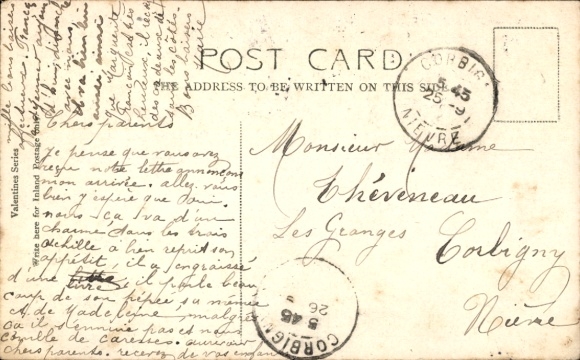 POST CARD
THE ADDRESS TO BE WRITTEN ON THIS SIDE
Valentines Series
Write here for Inland Postage only
CORBIGNY
5 45
25 -9
NIÈVRE
Chers parents
je pense que vous avez
reçu notre lettre annoncant
mon arrivée. allez vous
bien j'espère que oui.
nous ça va d'un
charme dans les trois
achille a bien reprit son
appétit, il a engraissé
d'une livre il parle beau
coup de son pépée sa mémée
et de Madeleine malgré
ça il s'ennuie pas et nous
comble de caresses. au revoir
chers parents. recevez de vos enfants
mille bons baisers
et bien
avec nous
il va bien
ainsi que
que Marguerite
François et les
il
dans les
Bons baisers
Monsieur Madame
Théveneau
Les Granges Corbigny
Nièvre
CORBIGNY
5 45
26